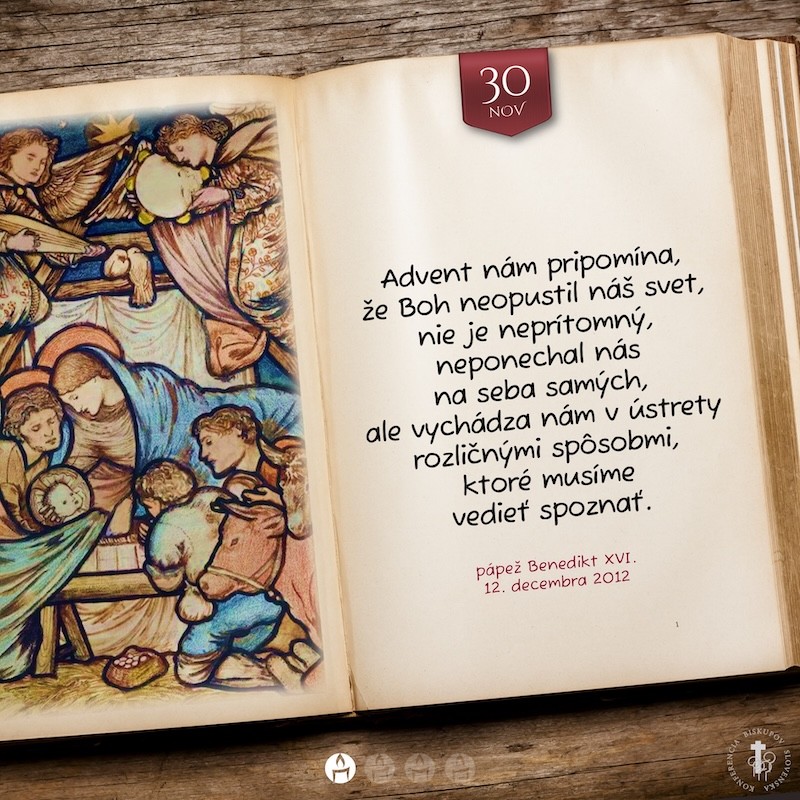 30
NOV
Advent nám pripomína,
že Boh neopustil náš svet,
nie je neprítomný,
neponechal nás
na seba samých,
ale vychádza nám v ústrety
rozličnými spôsobmi,
ktoré musíme
vedieť spoznať.
pápež Benedikt XVI.
12. decembra 2012
1
KONFERENCIA BISKUPOV SLOVENSKA